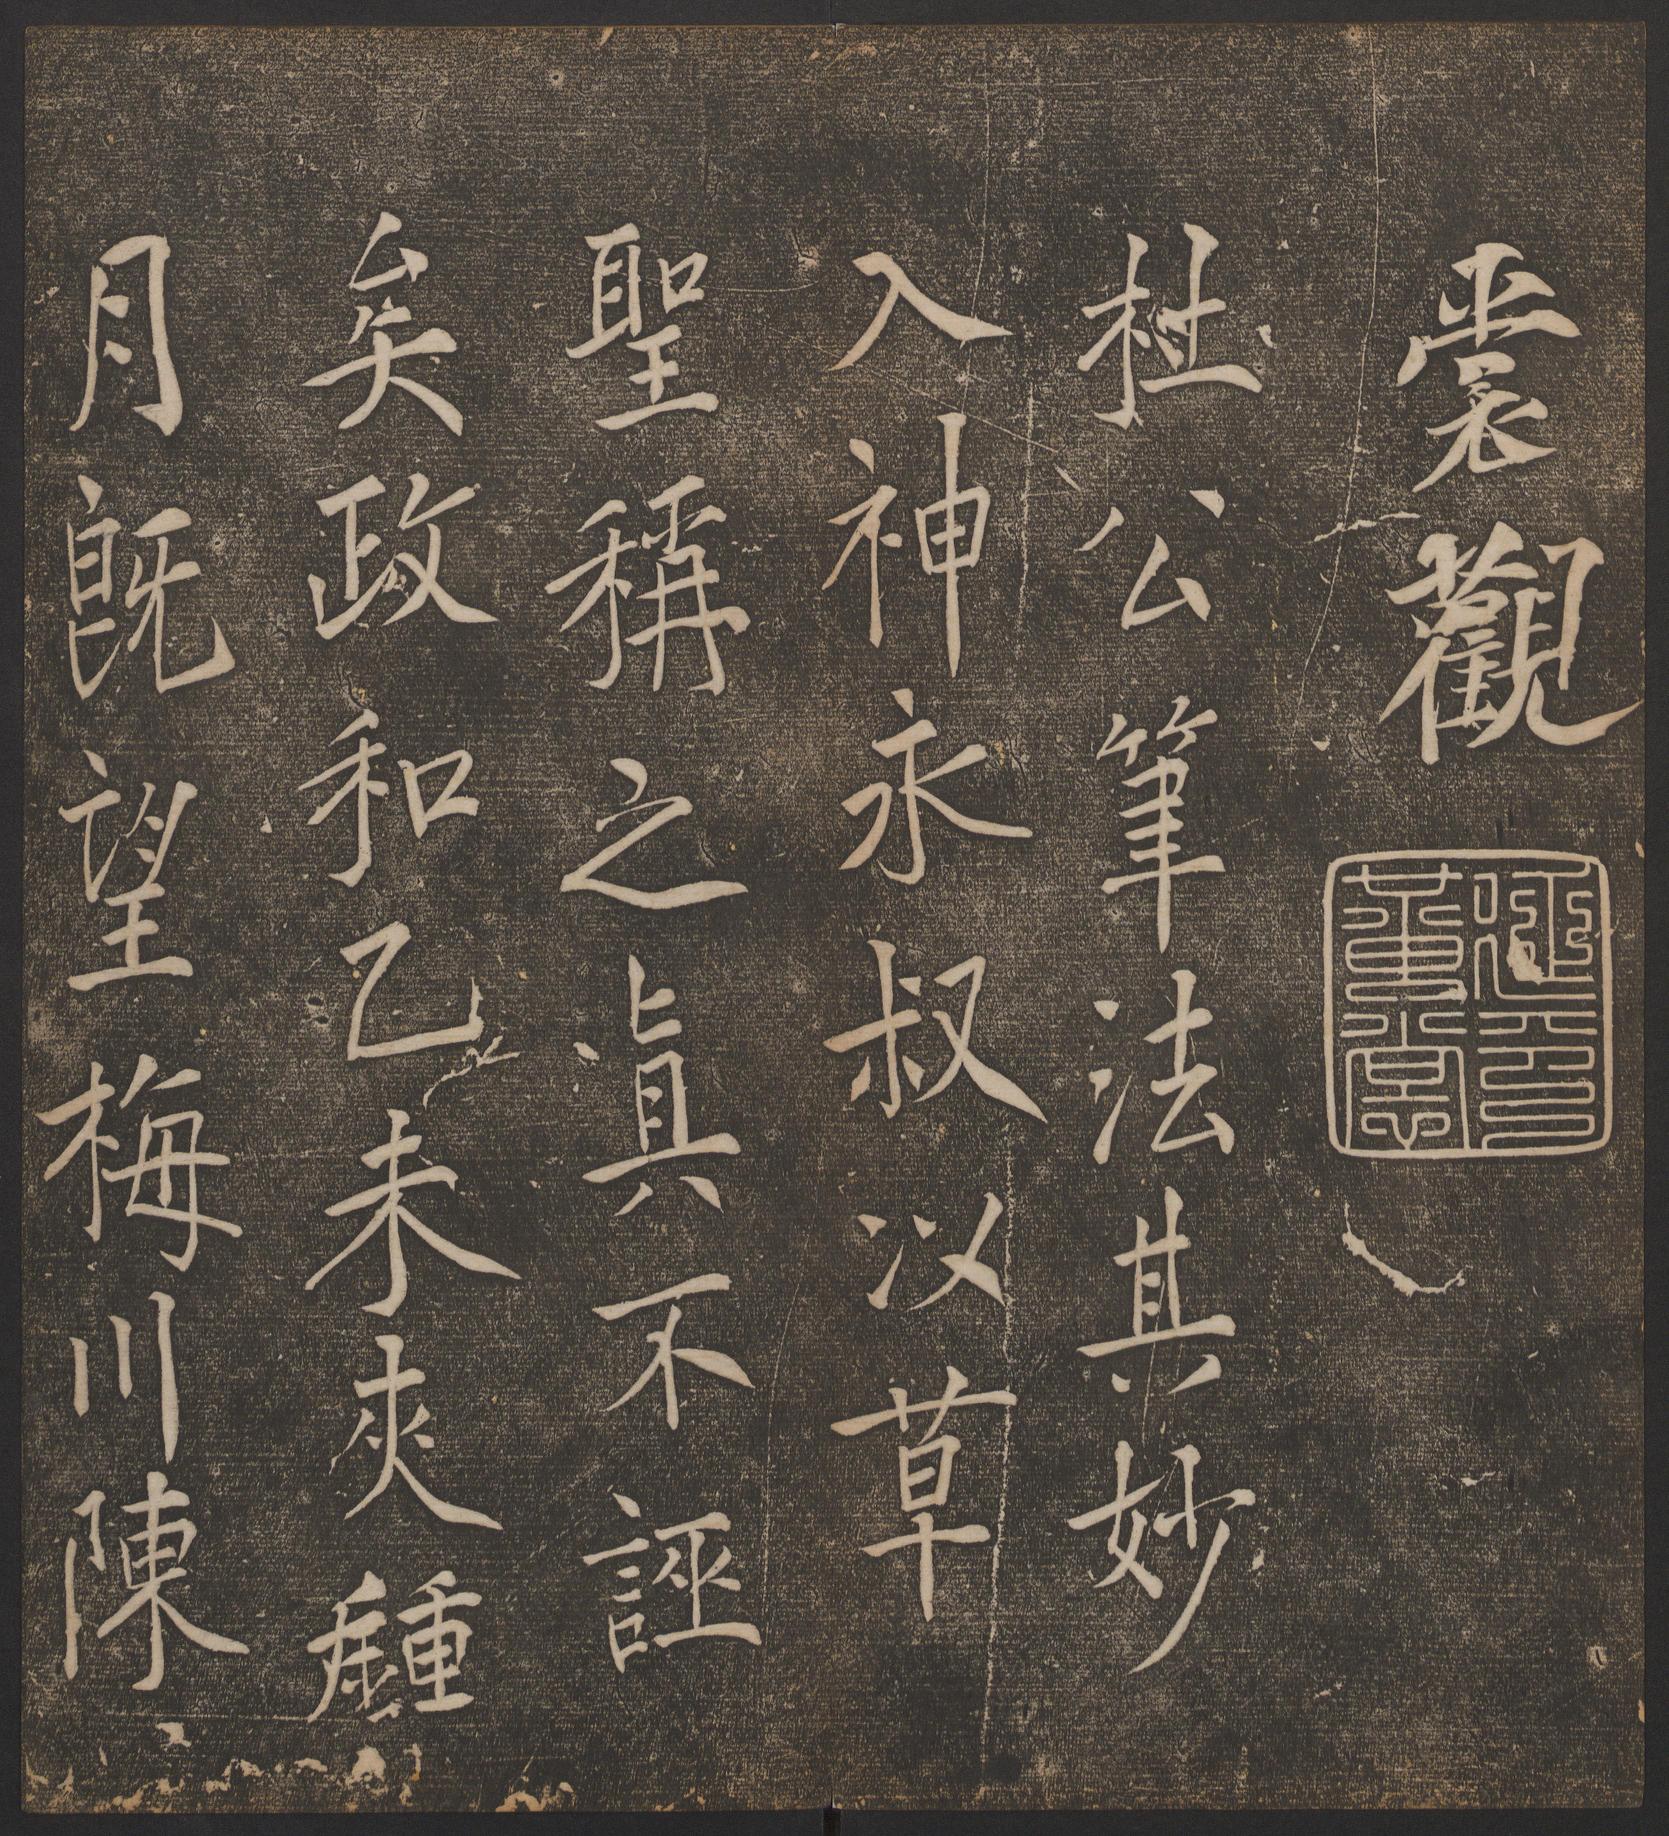 裳觀
杜公筆法其妙
入神永叔以草
聖稱之眞不誣
矣政和乙未夾鍾
月既望梅川陳